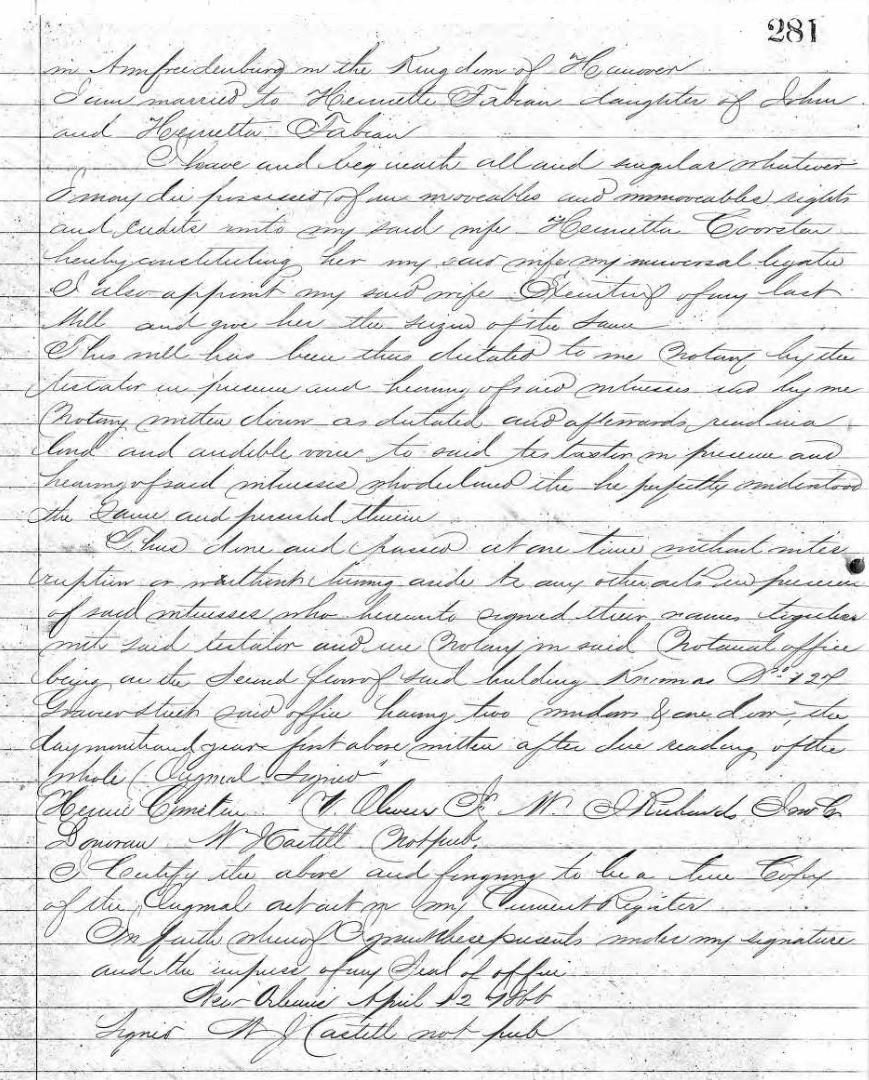 281
in Amfreedenburg in the Kingdom of Hanover
I am married to Henriette Fabian daughter of John
and Henrietta Fabian
I leave and bequeath all and singular whatever
I may die possessed of in moveables and immoveables rights
and credits unto my said wife Henrietta
hereby constituting her my said wife my universal legatee
I also appoint my said wife Executrix of my last
Will and give her the seizin of the same
This will has been thus dictated to me Notary by the
testator in presence and hearing of said witnesses and by me
Notary written down as dictated and afterwards read in a
loud and audible voice to said testator in presence and
hearing of said witnesses who declared the he perfectly understood
the same and persisted therein
Thus done and passed at one time without inter
ruption or without turning aside to any other acts in presence
of said witnesses who hereunto signed their names together
with said testator and me Notary in said Notarial office
being on the Second floor of said building Known as No 124
Gravier street said office "having two windows & one door", the
day month and year first above written after due reading of the
whole (Original Signed"
W. J. Richards Jno C.
Donovan W J Castell Not pub,
I Certify the above and foregoing to be a true Copy
of the Original act act in my Current Register
In faith whereof I grant these presents under my signature
and the impress of my Seal of office
New Orleans April 12 1866
Signed W J Castell not pub